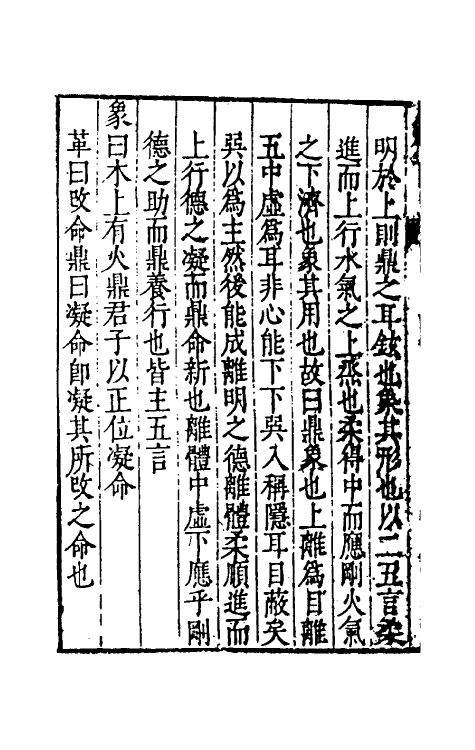 明於上則鼎之耳鉉也象其形也以二五言柔
進而上行水氣之上烝也柔得中而應剛火氣
之下濟也象其用也故曰鼎象也上離爲目離
五中虛爲耳非心能下下巽入稱隱耳目蔽矣
巽以爲主然後能成離明之德離體柔順進而
上行德之凝而鼎命新也離體中虛下應乎剛
德之助而鼎養行也皆主五言
象曰木上有火鼎君子以正位凝命
革曰改命鼎曰凝命卽凝其所改之命也